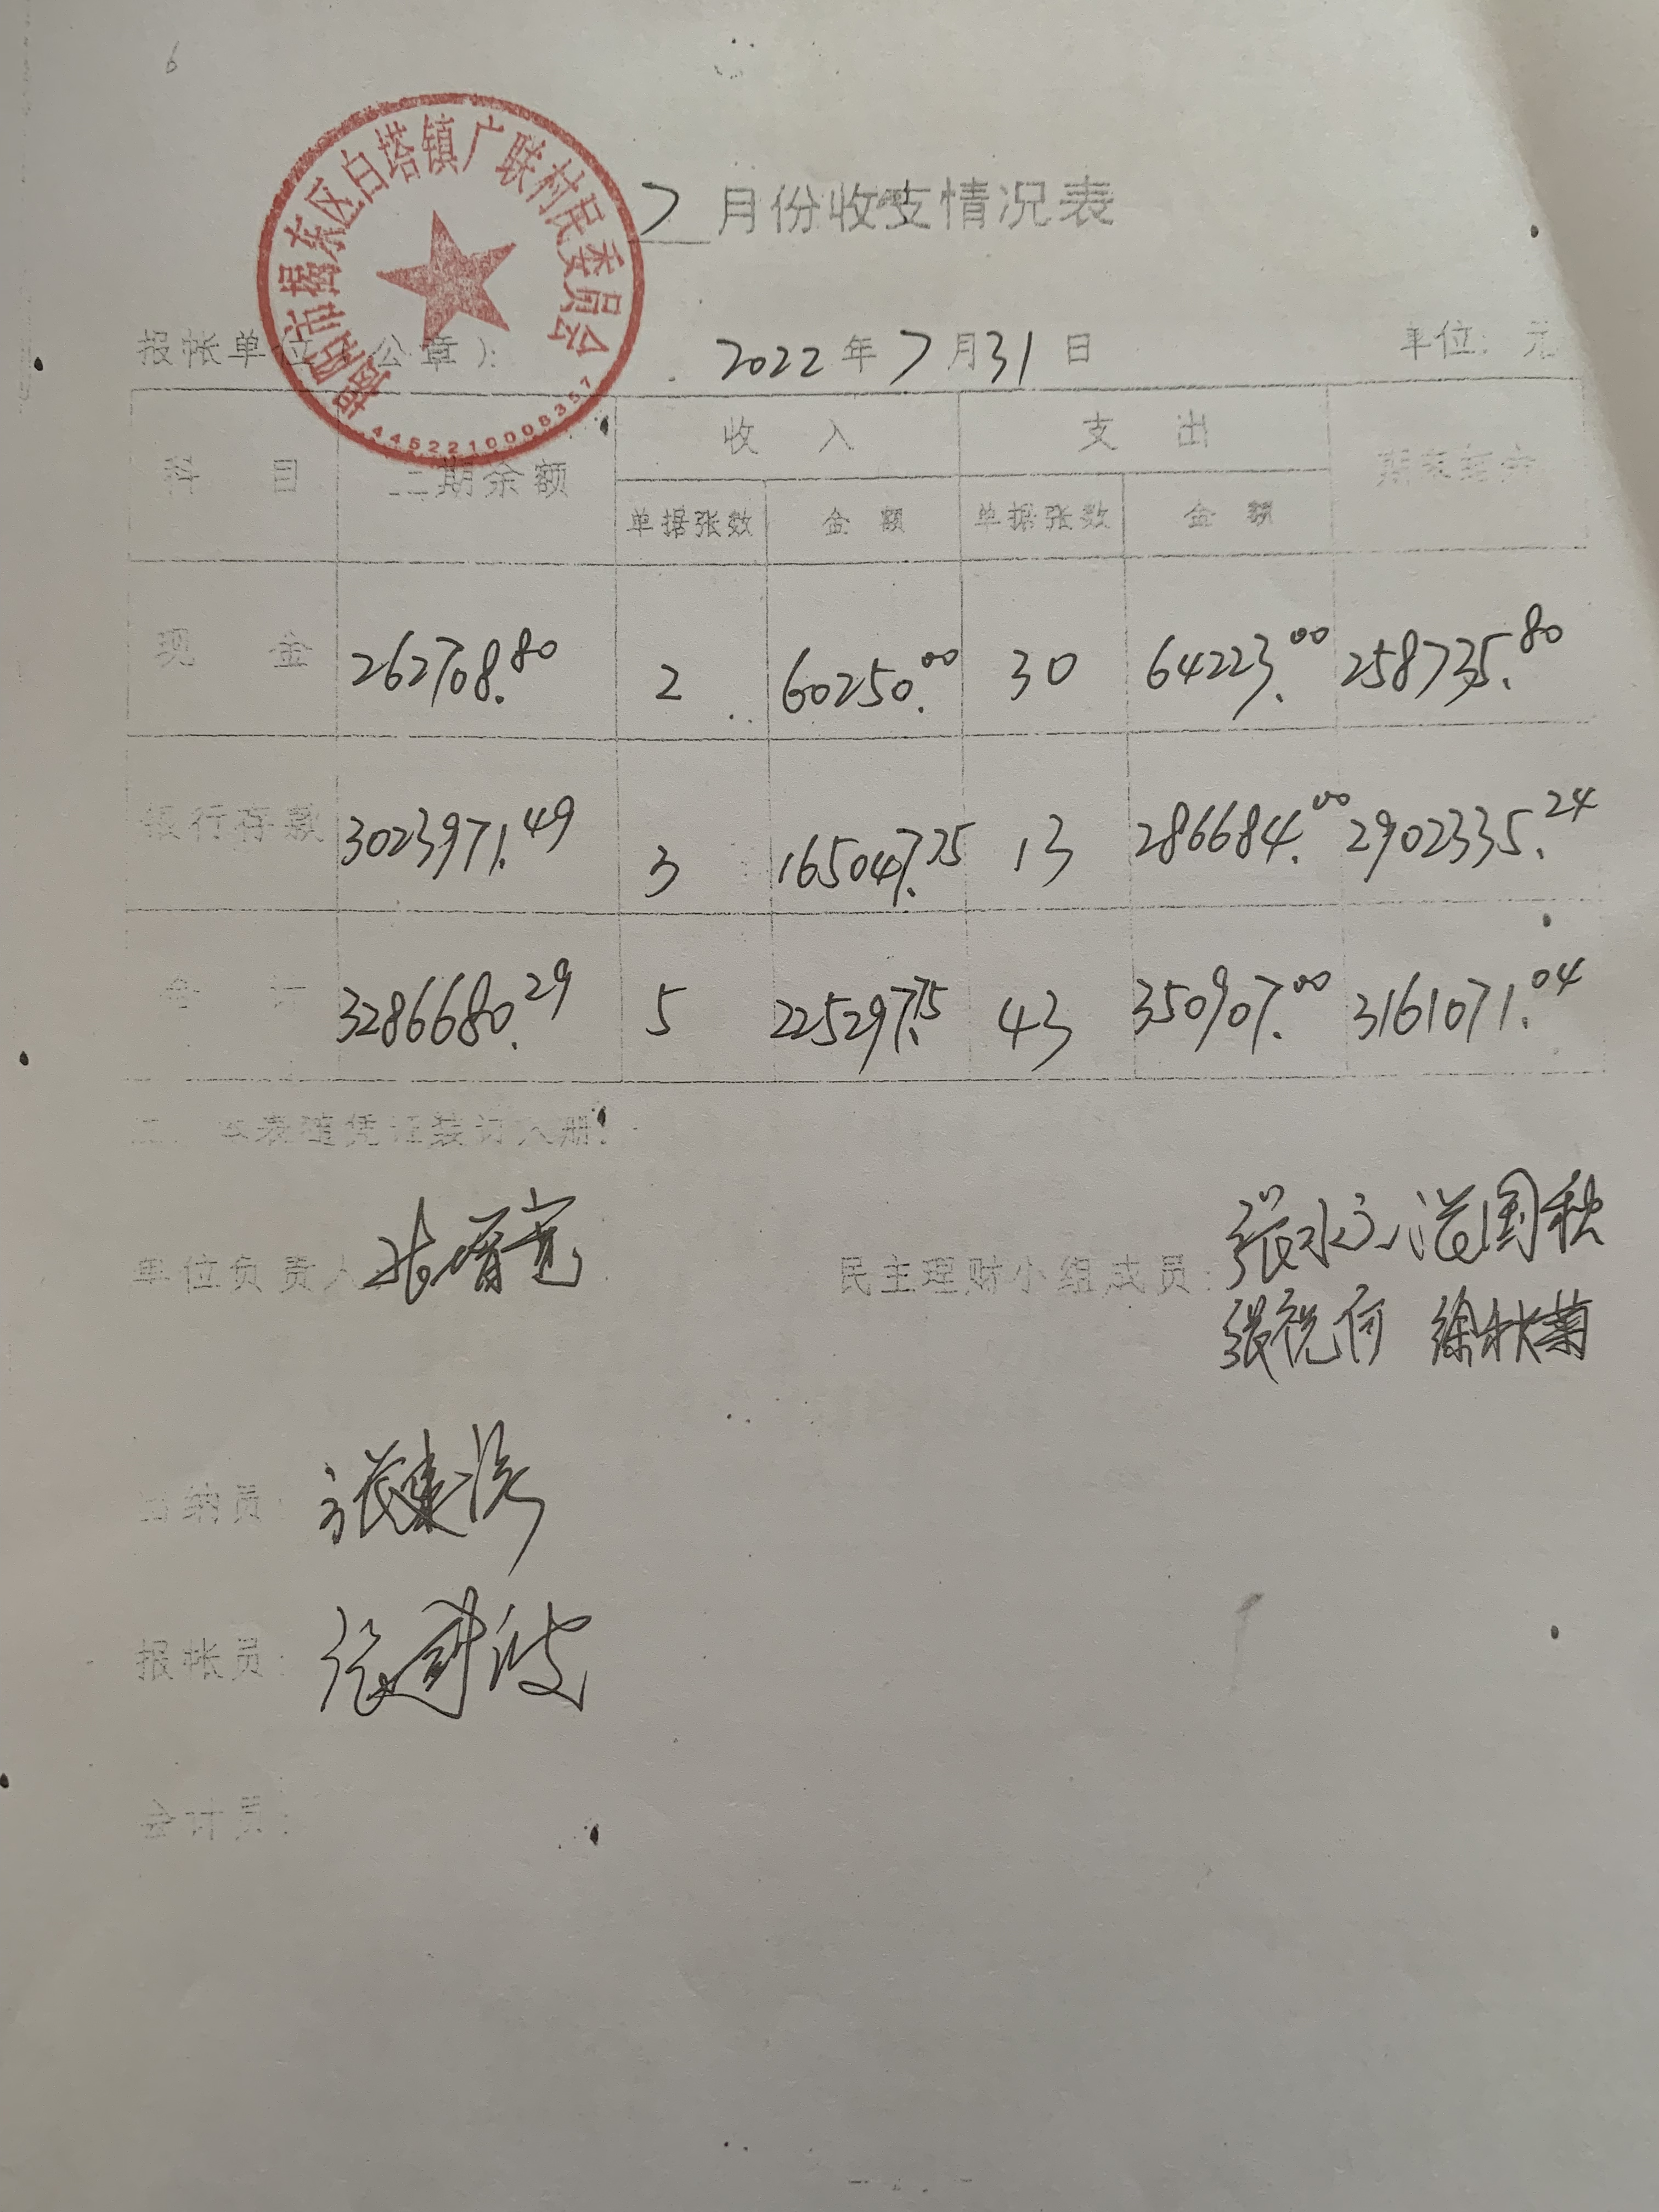 6
揭阳市揭东区白塔镇广联村民委员会
4452210008357
7月份收支情况表
报帐单位(公章):
2022年7月31日
单位:元
科目 上期余额 收入 支出 期末结余
单据张数 金额 单据张数 金额
现金 262708.80 2 60250.00 30 64223.00 258735.80
银行存款 3023971.49 3 165047.75 13 286684.00 2902335.24
合计 3286680.29 5 225297.75 43 350907.00 3161071.04
本表随凭证装订入册.
单位负责人
民主理财小组成员:
张祝河 徐秋菊
出纳员:
报帐员:
会计员: